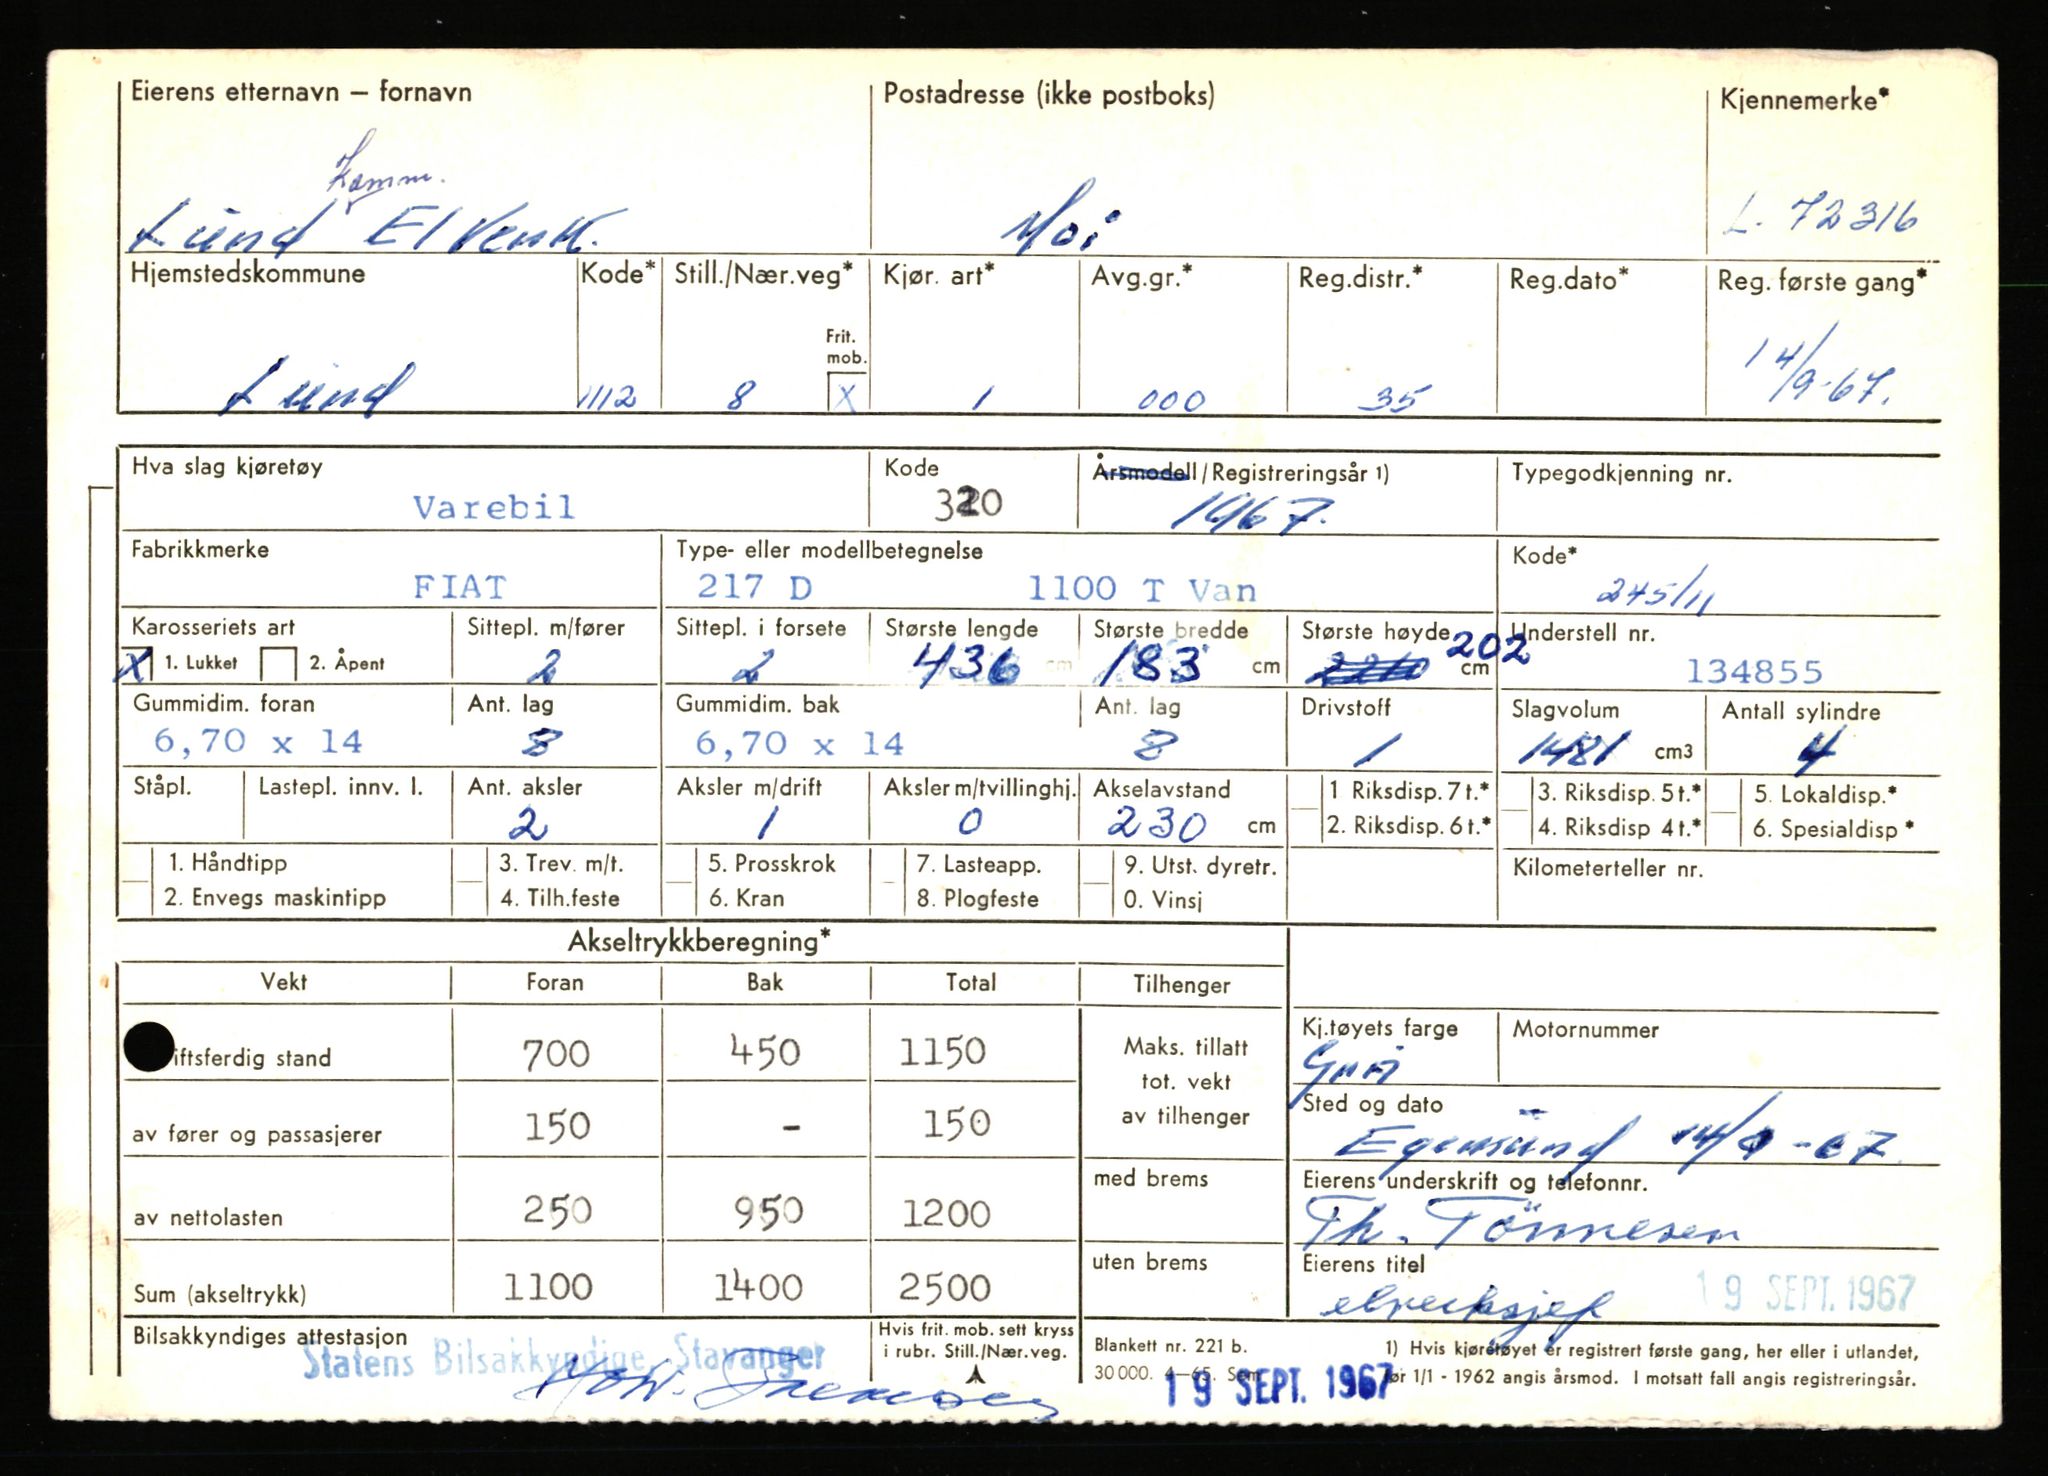 Eierens etternavn — fornavn Postadresse (ikke postboks) Kjennemerke*
Komm.
Lund Elverk. Moi L- 72316
Hjemstedskommune Kode* Still./Nær.veg* Kjør. art* Avg.gr.* Reg.distr.* Reg.dato* Reg. første gang*
Frit.
mob.
Lund 1112 8 X 1 000 35 14/9-67.
Hva slag kjøretøy Kode Årsmodell/Registreringsår 1) Typegodkjenning nr.
Varebil 320 1967.
Fabrikkmerke Type- eller modellbetegnelse Kode*
FIAT 217 D 1100 T Van 245/11
Karosseriets art Sittepl. m/fører Sittepl. i forsete Største lengde Største bredde Største høyde Understell nr.
X 1. Lukket 2. Åpent 2 2 436 cm 183 cm 202 cm 134855
Gummidim. foran Ant. lag Gummidim. bak Ant. lag Drivstoff Slagvolum Antall sylindre
6,70 x 14 8 6,70 x 14 8 1 1481 cm3 4
Ståpl. Lastepl. innv. l. Ant. aksler Aksler m/drift Aksler m/tvillinghj. Akselavstand 1 Riksdisp. 7 t.* 3. Riksdisp. 5 t.* 5. Lokaldisp.*
2 1 0 230 cm 2. Riksdisp. 6 t.* 4. Riksdisp 4 t.* 6. Spesialdisp *
1. Håndtipp 3. Trev. m/t. 5. Prosskrok 7. Lasteapp. 9. Utst. dyretr. Kilometerteller nr.
2. Envegs maskintipp 4. Tilh.feste 6. Kran 8. Plogfeste 0. Vinsj
Akseltrykkberegning*
Vekt Foran Bak Total Tilhenger
Kj.tøyets farge Motornummer
iftsferdig stand 700 450 1150 Maks. tillatt
tot. vekt
av tilhenger
Grå
Sted og dato
av fører og passasjerer 150 - 150
Egersund 14/9-67
med brems Eierens underskrift og telefonnr.
av nettolasten 250 950 1200 Th. Tönnesen
uten brems Eierens titel
Sum (akseltrykk) 1100 1400 2500 elverksjef 19 SEPT. 1967
Bilsakkyndiges attestasjon Hvis frit. mob. sett kryss
i rubr. Still./Nær.veg.
Statens Bilsakkyndige, Stavanger
Blankett nr. 221 b.
30 000. 4—65. Sem
19 SEPT. 1967
1) Hvis kjøretøyet er registrert første gang, her eller i utlandet,
før 1/1 - 1962 angis årsmod. I motsatt fall angis registreringsår.